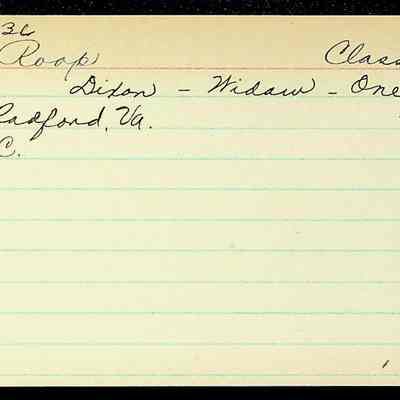 36
Roop Class
Dixon - Widow - One
Radford, Va.
C.